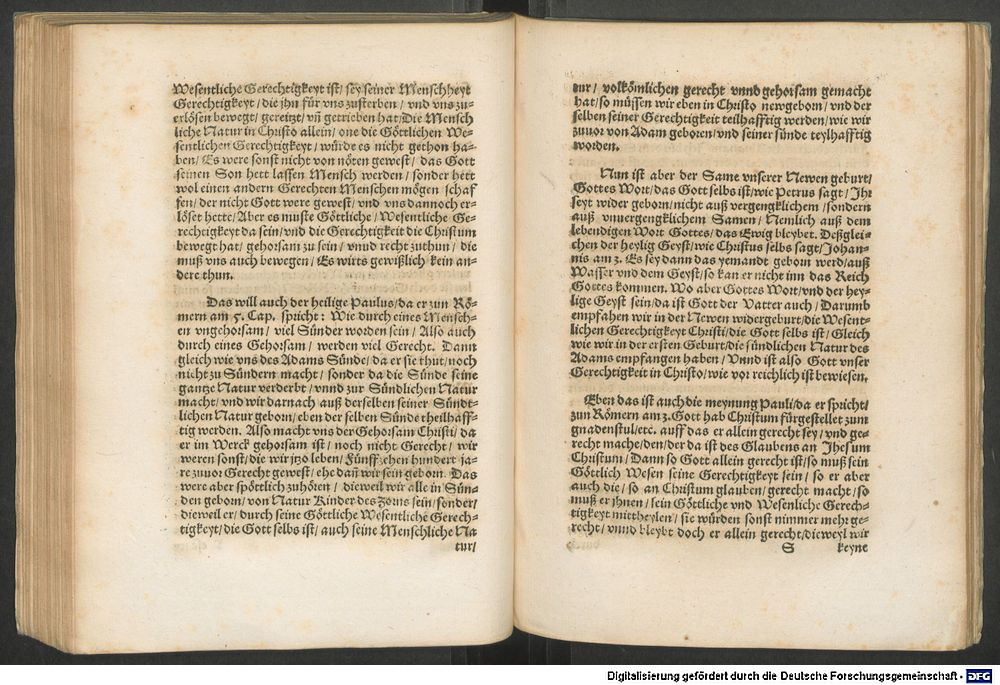 Wesentliche Gerechtigkeyt ist/ sey seiner Menschheyt
Gerechtigkeyt/ die jhn für vns zusterben/ vnd vns zu-
erlösen bewegt/ gereitzt/ vñ getrieben hat/ Die Mensch
liche Natur in Christo allein/ one die Göttlichen We-
sentlichen Gerechtigkeyt/ würde es nicht gethon ha-
ben/ Es were sonst nicht von nöten gewest/ das Gott
seinen Son hett lassen Mensch werden/ sonder hett
wol einen andern Gerechten Menschen mögen schaf
fen/ der nicht Gott were gewest/ vnd vns dannoch er-
löset hette/ Aber es muste Göttliche/ Wesentliche Ge-
rechtigkeyt da sein/ vnd die Gerechtigkeit die Christum
bewegt hat/ gehorsam zu sein/ vnnd recht zuthun/ die
muß vns auch bewegen/ Es wirts gewißlich kein an-
dere thun.
Das will auch der heilige Paulus/ da er zun Rö-
mern am 5. Cap. spricht: Wie durch eines Mensch-
en vngehorsam/ viel Sünder worden sein/ Also auch
durch eines Gehorsam/ werden viel Gerecht. Dann
gleich wie vns des Adams Sünde/ da er sie thut/ noch
nicht zu Sündern macht/ sonder da die Sünde seine
gantze Natur verderbt/ vnnd zur Sündlichen Natur
macht/ vnd wir darnach auß derselben seiner Sündt-
lichen Natur geborn/ eben der selben Sünde theilhaff-
tig werden. Also macht vns der Gehorsam Christi/ da
er im Werck gehorsam ist/ noch nicht Gerecht/ wir
weren sonst/ die wir jtzo leben/ Fünffzehen hundert ja-
re zuuor Gerecht gewest/ ehe dañ wir sein geborn. Das
were aber spötlich zuhören/ dieweil wir alle in Sün-
den geborn/ von Natur Kinder des Zorns sein/ sonder/
dieweil er/ durch seine Göttliche Wesentliche Gerech-
tigkeyt/ die Gott selbs ist/ auch seine Menschliche Na
tur/
tur/ volkömlichen gerecht vnnd gehorsam gemacht
hat/ so müssen wir eben in Christo newgeborn/ vnd der
selben seiner Gerechtigkeit teilhafftig werden/ wie wir
zuuor von Adam geboren/ vnd seiner sünde teylhafftig
worden.
Nun ist aber der Same vnserer Newen geburt/
Gottes Wort/ das Gott selbs ist/ wie Petrus sagt/ Jhr
seyt wider geborn/ nicht auß vergengklichem/ sondern
auß vnuergengklichem Samen/ Nemlich auß dem
lebendigen Wort Gottes/ das Ewig bleybet. Deßglei-
chen der heylig Geyst/ wie Christus selbs sagt/ Johan-
nis am 3. Es sey dann das yemandt geborn werd/ auß
Wasser vnd dem Geyst/ so kan er nicht inn das Reich
Gottes kommen. Wo aber Gottes Wort/ vnd der hey-
lige Geyst sein/ da ist Gott der Vatter auch/ Darumb
empfahen wir in der Newen widergeburt/ die Wesent-
lichen Gerechtigkeyt Christi/ die Gott selbs ist/ Gleich
wie wir in der ersten Geburt/ die sündlichen Natur des
Adams empfangen haben/ Vnnd ist also Gott vnser
Gerechtigkeit in Christo/ wie vor reichlich ist bewiesen.
Eben das ist auch die meynung Pauli/ da er spricht/
zun Römern am 3. Gott hab Christum fürgestellet zum
gnadenstul/ etc. auff das er allein gerecht sey/ vnd ge-
recht mache/ den/ der da ist des Glaubens an Jhesum
Christum/ Dann so Gott allein gerecht ist/ so muß sein
Göttlich Wesen seine Gerechtigkeyt sein/ so er aber
auch die/ so an Christum glauben/ gerecht macht/ so
muß er jhnen/ sein Göttliche vnd Wesenliche Gerech-
tigkeyt mittheylen/ sie würden sonst nimmer mehr ge-
recht/ vnnd bleybt doch er allein gerecht/ dieweyl wir
S keyne
Digitalisierung gefördert durch die Deutsche Forschungsgemeinschaft - DFG